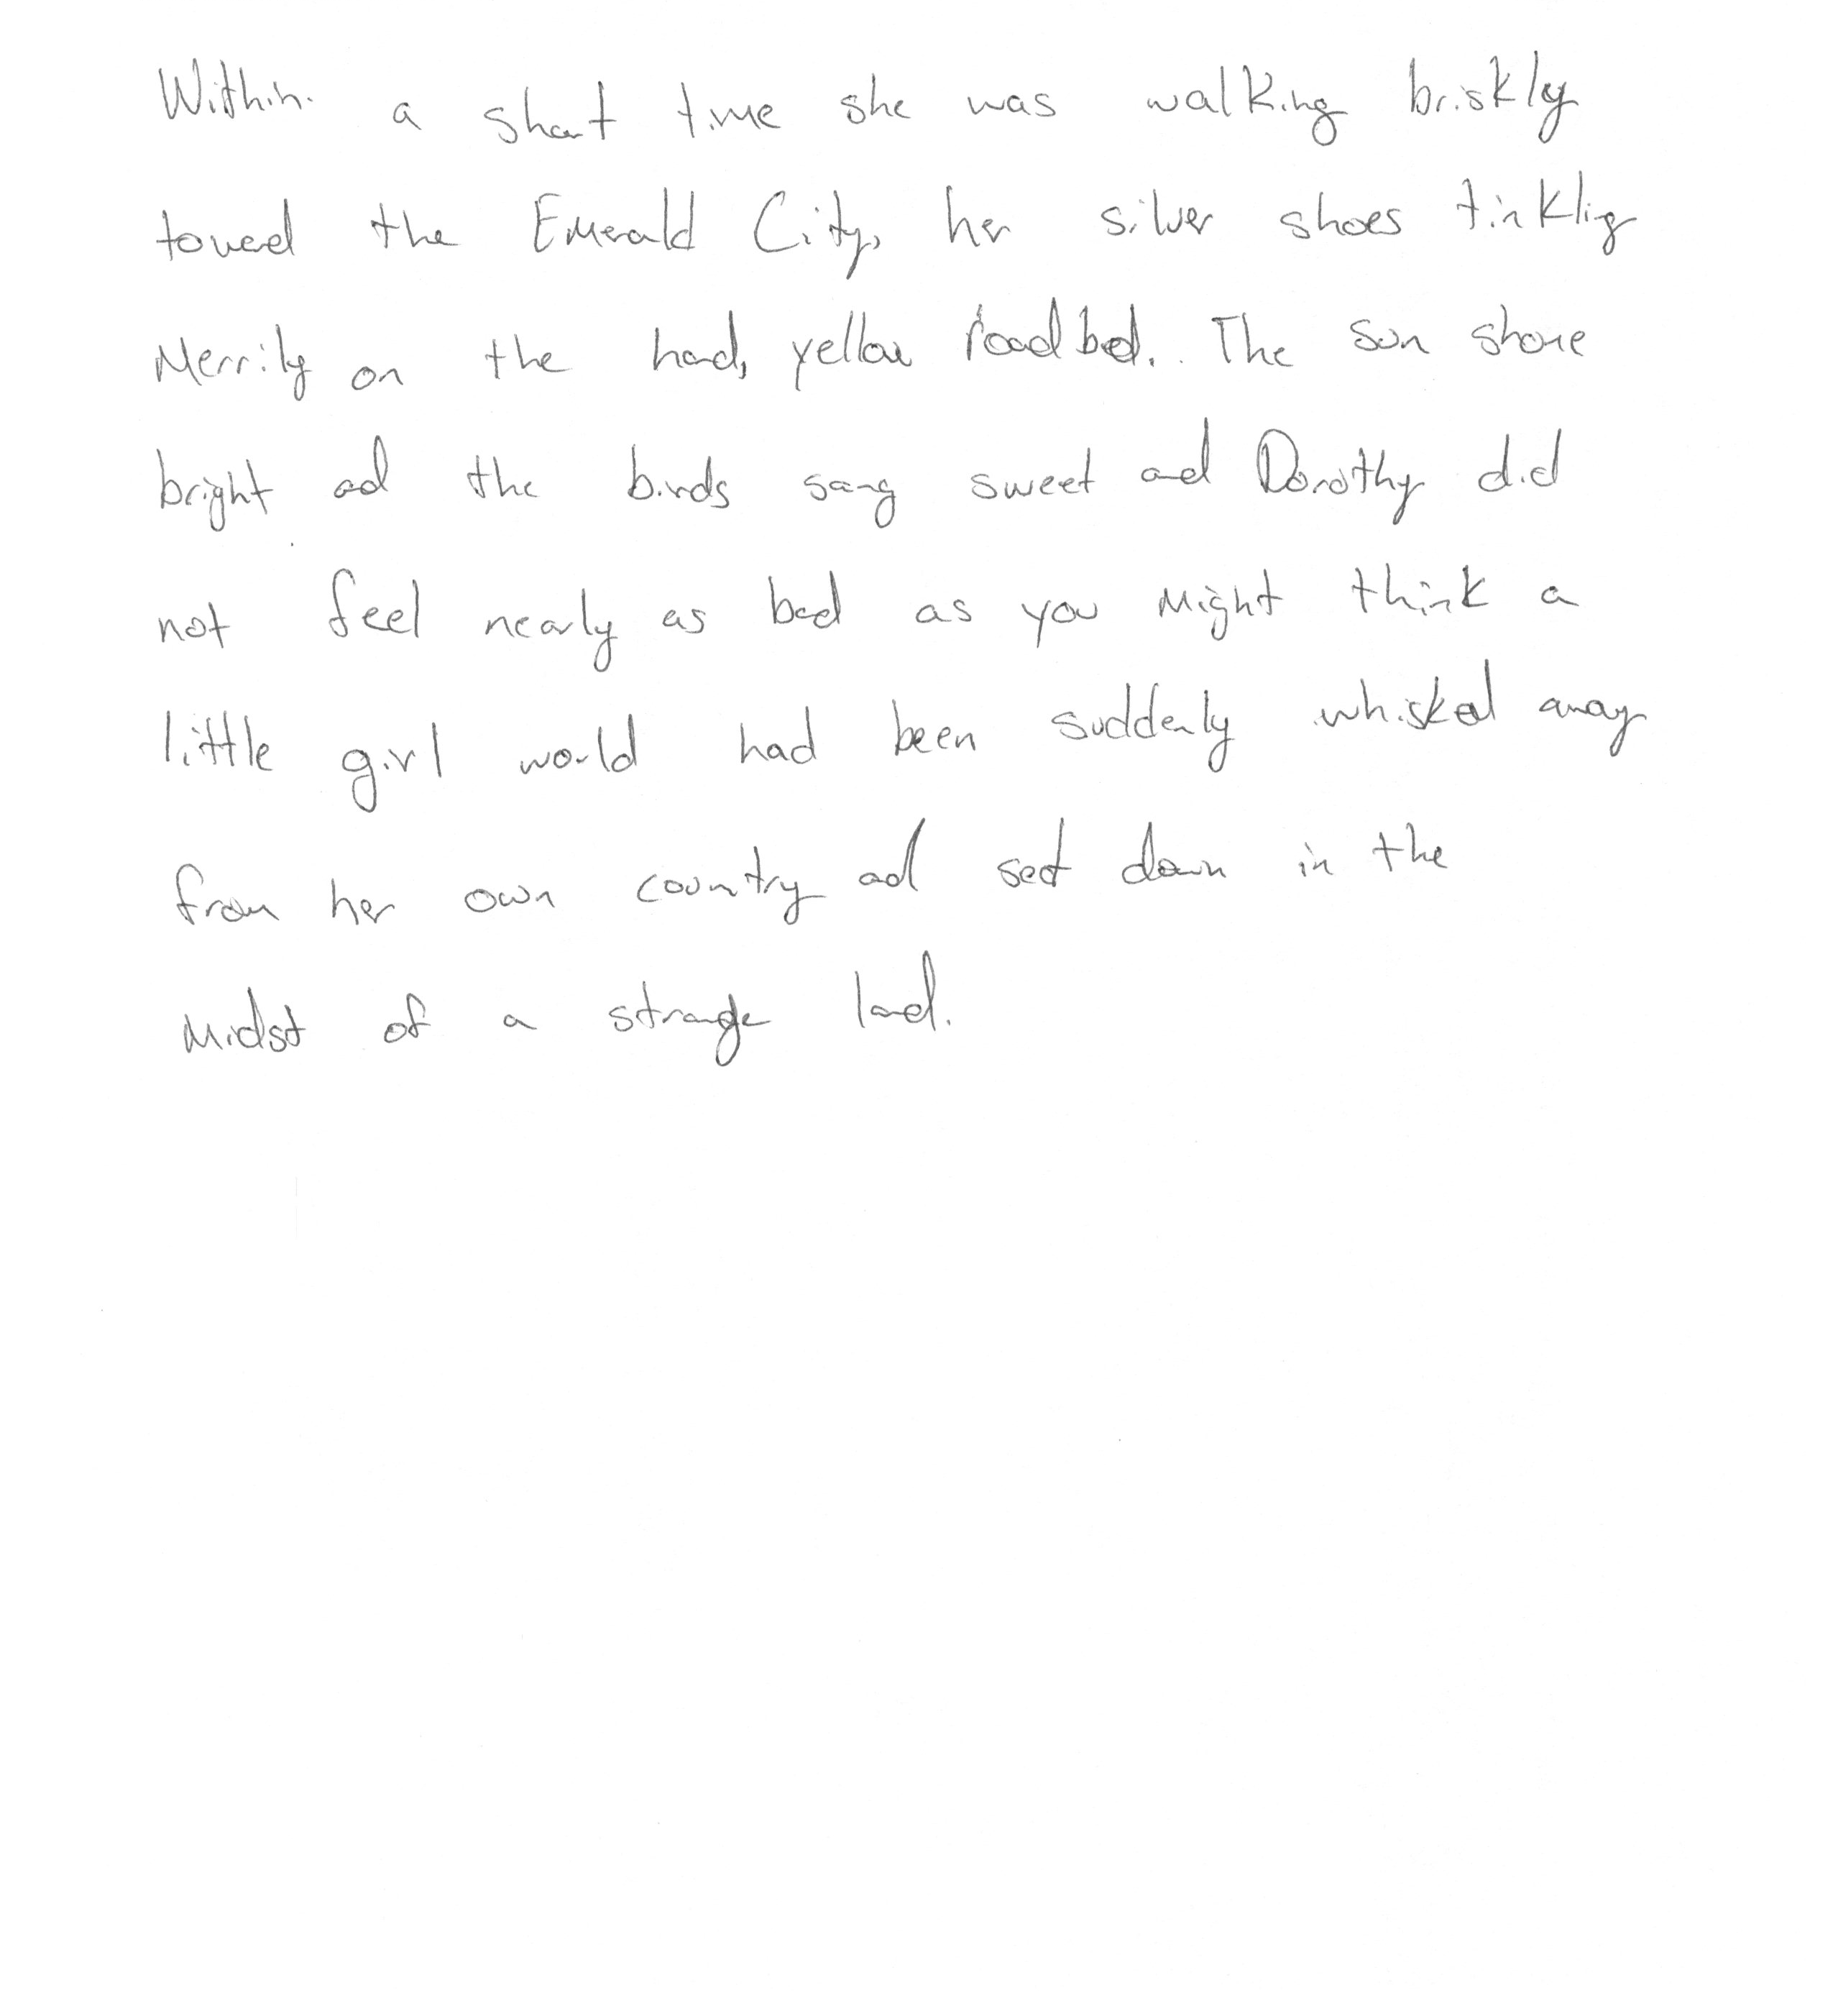 Within a short time she was walking briskly
toward the Emerald City, her silver shoes tinkling
Merrily on the hard, yellow roadbed. The sun shone
bright and the birds sang sweet and Dorothy did
not feel nearly as bad as you might think a
little girl would had been suddenly whisked away
from her own country and set down in the
midst of a strange land.